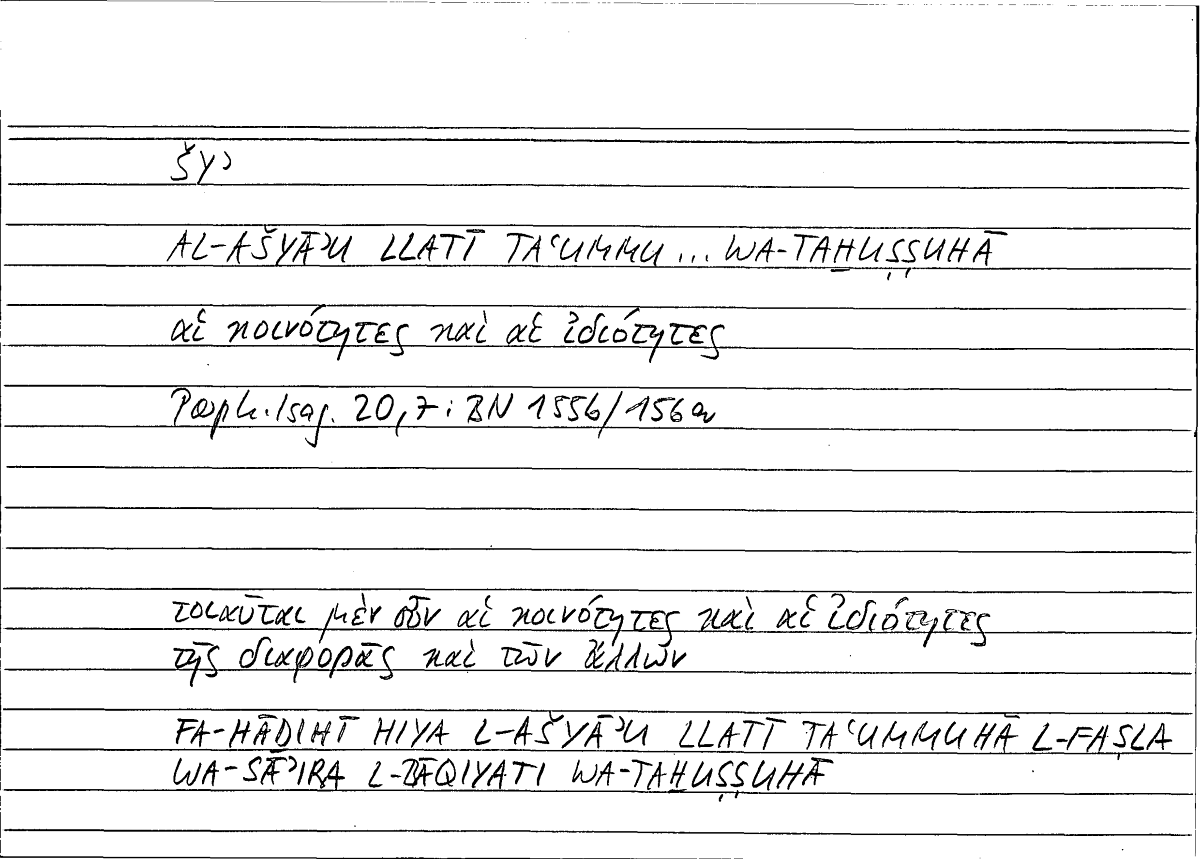 šyʾ
AL-AŠYĀʾU LLATĪ TAʿUMMU ... WA-TAḪUṢṢUHĀ
αἱ κοινότητες καὶ αἱ ἰδιότητες
Porph. Isag. 20,7: BN 1556/156a
τοιαῦται μὲν οὖν αἱ κοινότητες καὶ αἱ ἰδιότητες
τῆς διαφορᾶς καὶ τῶν ἄλλων
FA-HĀḎIHĪ HIYA L-AŠYĀʾU LLATĪ TAʿUMMUHĀ L-FAṢLA
WA-SĀʾIRA L-BĀQIYATI WA-TAḪUṢṢUHĀ